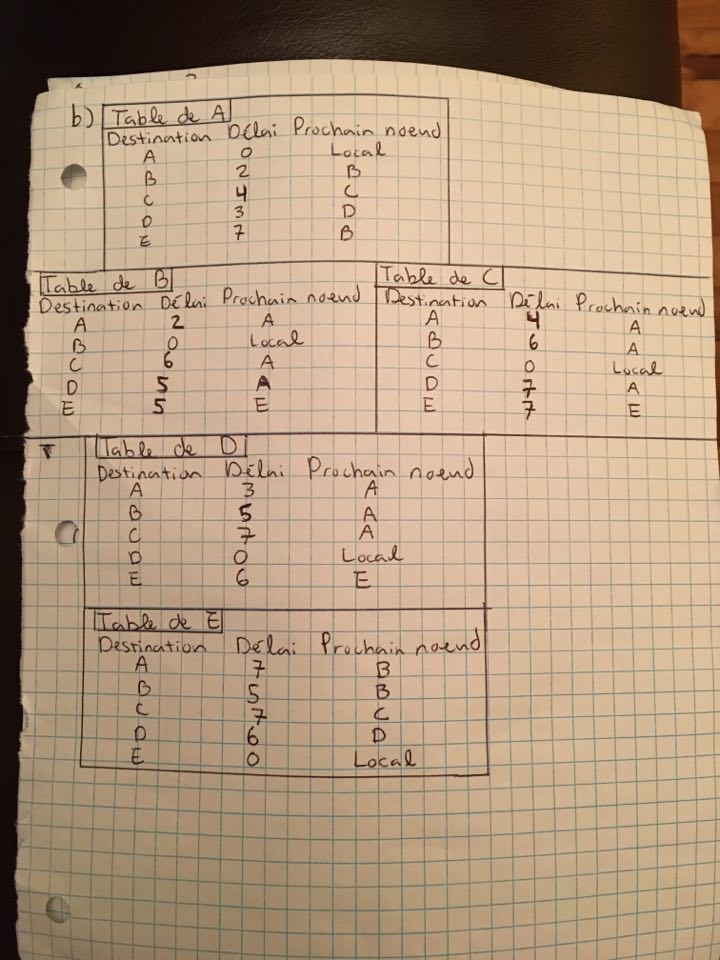 b) Table de A
Destination Délai Prochain noeud
A 0 Local
B 2 B
C 4 C
D 3 D
E 7 B
Table de B
Destination Délai Prochain noeud
A 2 A
B 0 Local
C 6 A
D 5 A
E 5 E
Table de C
Destination Délai Prochain noeud
A 4 A
B 6 A
C 0 Local
D 7 A
E 7 E
Table de D
Destination Délai Prochain noeud
A 3 A
B 5 A
C 7 A
D 0 Local
E 6 E
Table de E
Destination Délai Prochain noeud
A 7 B
B 5 B
C 7 C
D 6 D
E 0 Local